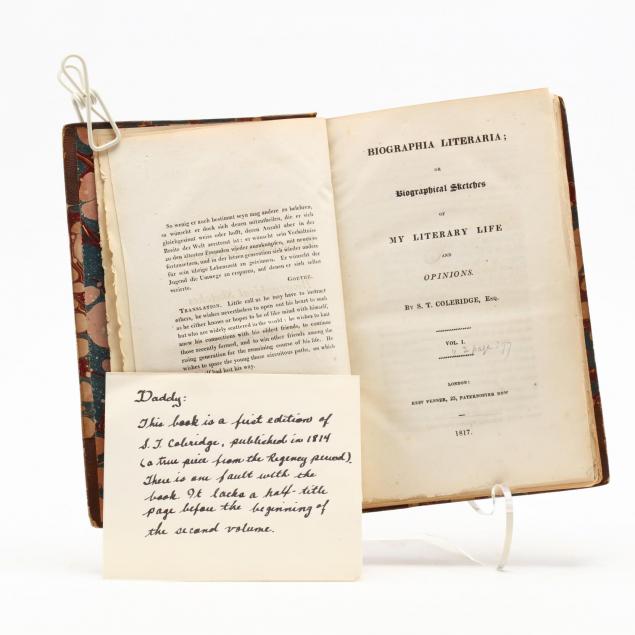 So wenig er auch bestimmt seyn mag andere zu belehren,
so wünscht er doch sich denen mitzutheilen, die er sich
gleichgesinnt weiss oder hofft, deren Anzahl aber in der
Breite der Welt zerstreut ist: er wünscht sein Verhältniss
zu den ältesten Freunden wieder anzuknüpfen, mit neuen es
fortzusetzen, und in der letzen generation sich wieder andere
für sein übrige Lebenszeit zu gewinnen. Er wünscht der
Jugend die Umwege zu ersparen, auf denen er sich selbst
verirrte.
Goethe.
Translation. Little call as he may have to instruct
others, he wishes nevertheless to open out his heart to such
as he either knows or hopes to be of like mind with himself,
but who are widely scattered in the world: he wishes to knit
anew his connections with his oldest friends, to continue
those recently formed, and to win other friends among the
rising generation for the remaining course of his life. He
wishes to spare the young those circuitous paths, on which
self had lost his way.
BIOGRAPHIA LITERARIA;
OR
Biographical Sketches
OF
MY LITERARY LIFE
AND
OPINIONS.
By S. T. COLERIDGE, Esq.
VOL. I.
LONDON:
REST FENNER, 23, PATERNOSTER ROW
1817.
Daddy:
This book is a first edition of
S. T. Coleridge, published in 1814
(a true piece from the Regency period).
There is one fault with the
book. It lacks a half-title
page before the beginning of
the second volume.